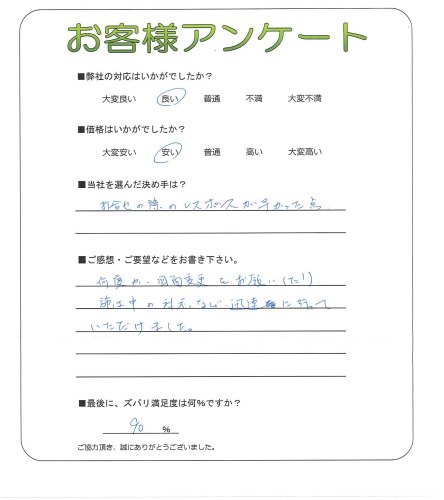 お客様アンケート
■弊社の対応はいかがでしたか？
大変良い 良い 普通 不満 大変不満
■価格はいかがでしたか？
大変安い 安い 普通 高い 大変高い
■当社を選んだ決め手は？
の際のレスポンスが早かった点
■ご感想・ご要望などをお書き下さい。
何度か、図面変更をお願いしたり
施工中の対応など、迅速に行って
いただけました。
■最後に、ズバリ満足度は何％ですか？
90 ％
ご協力頂き、誠にありがとうございました。